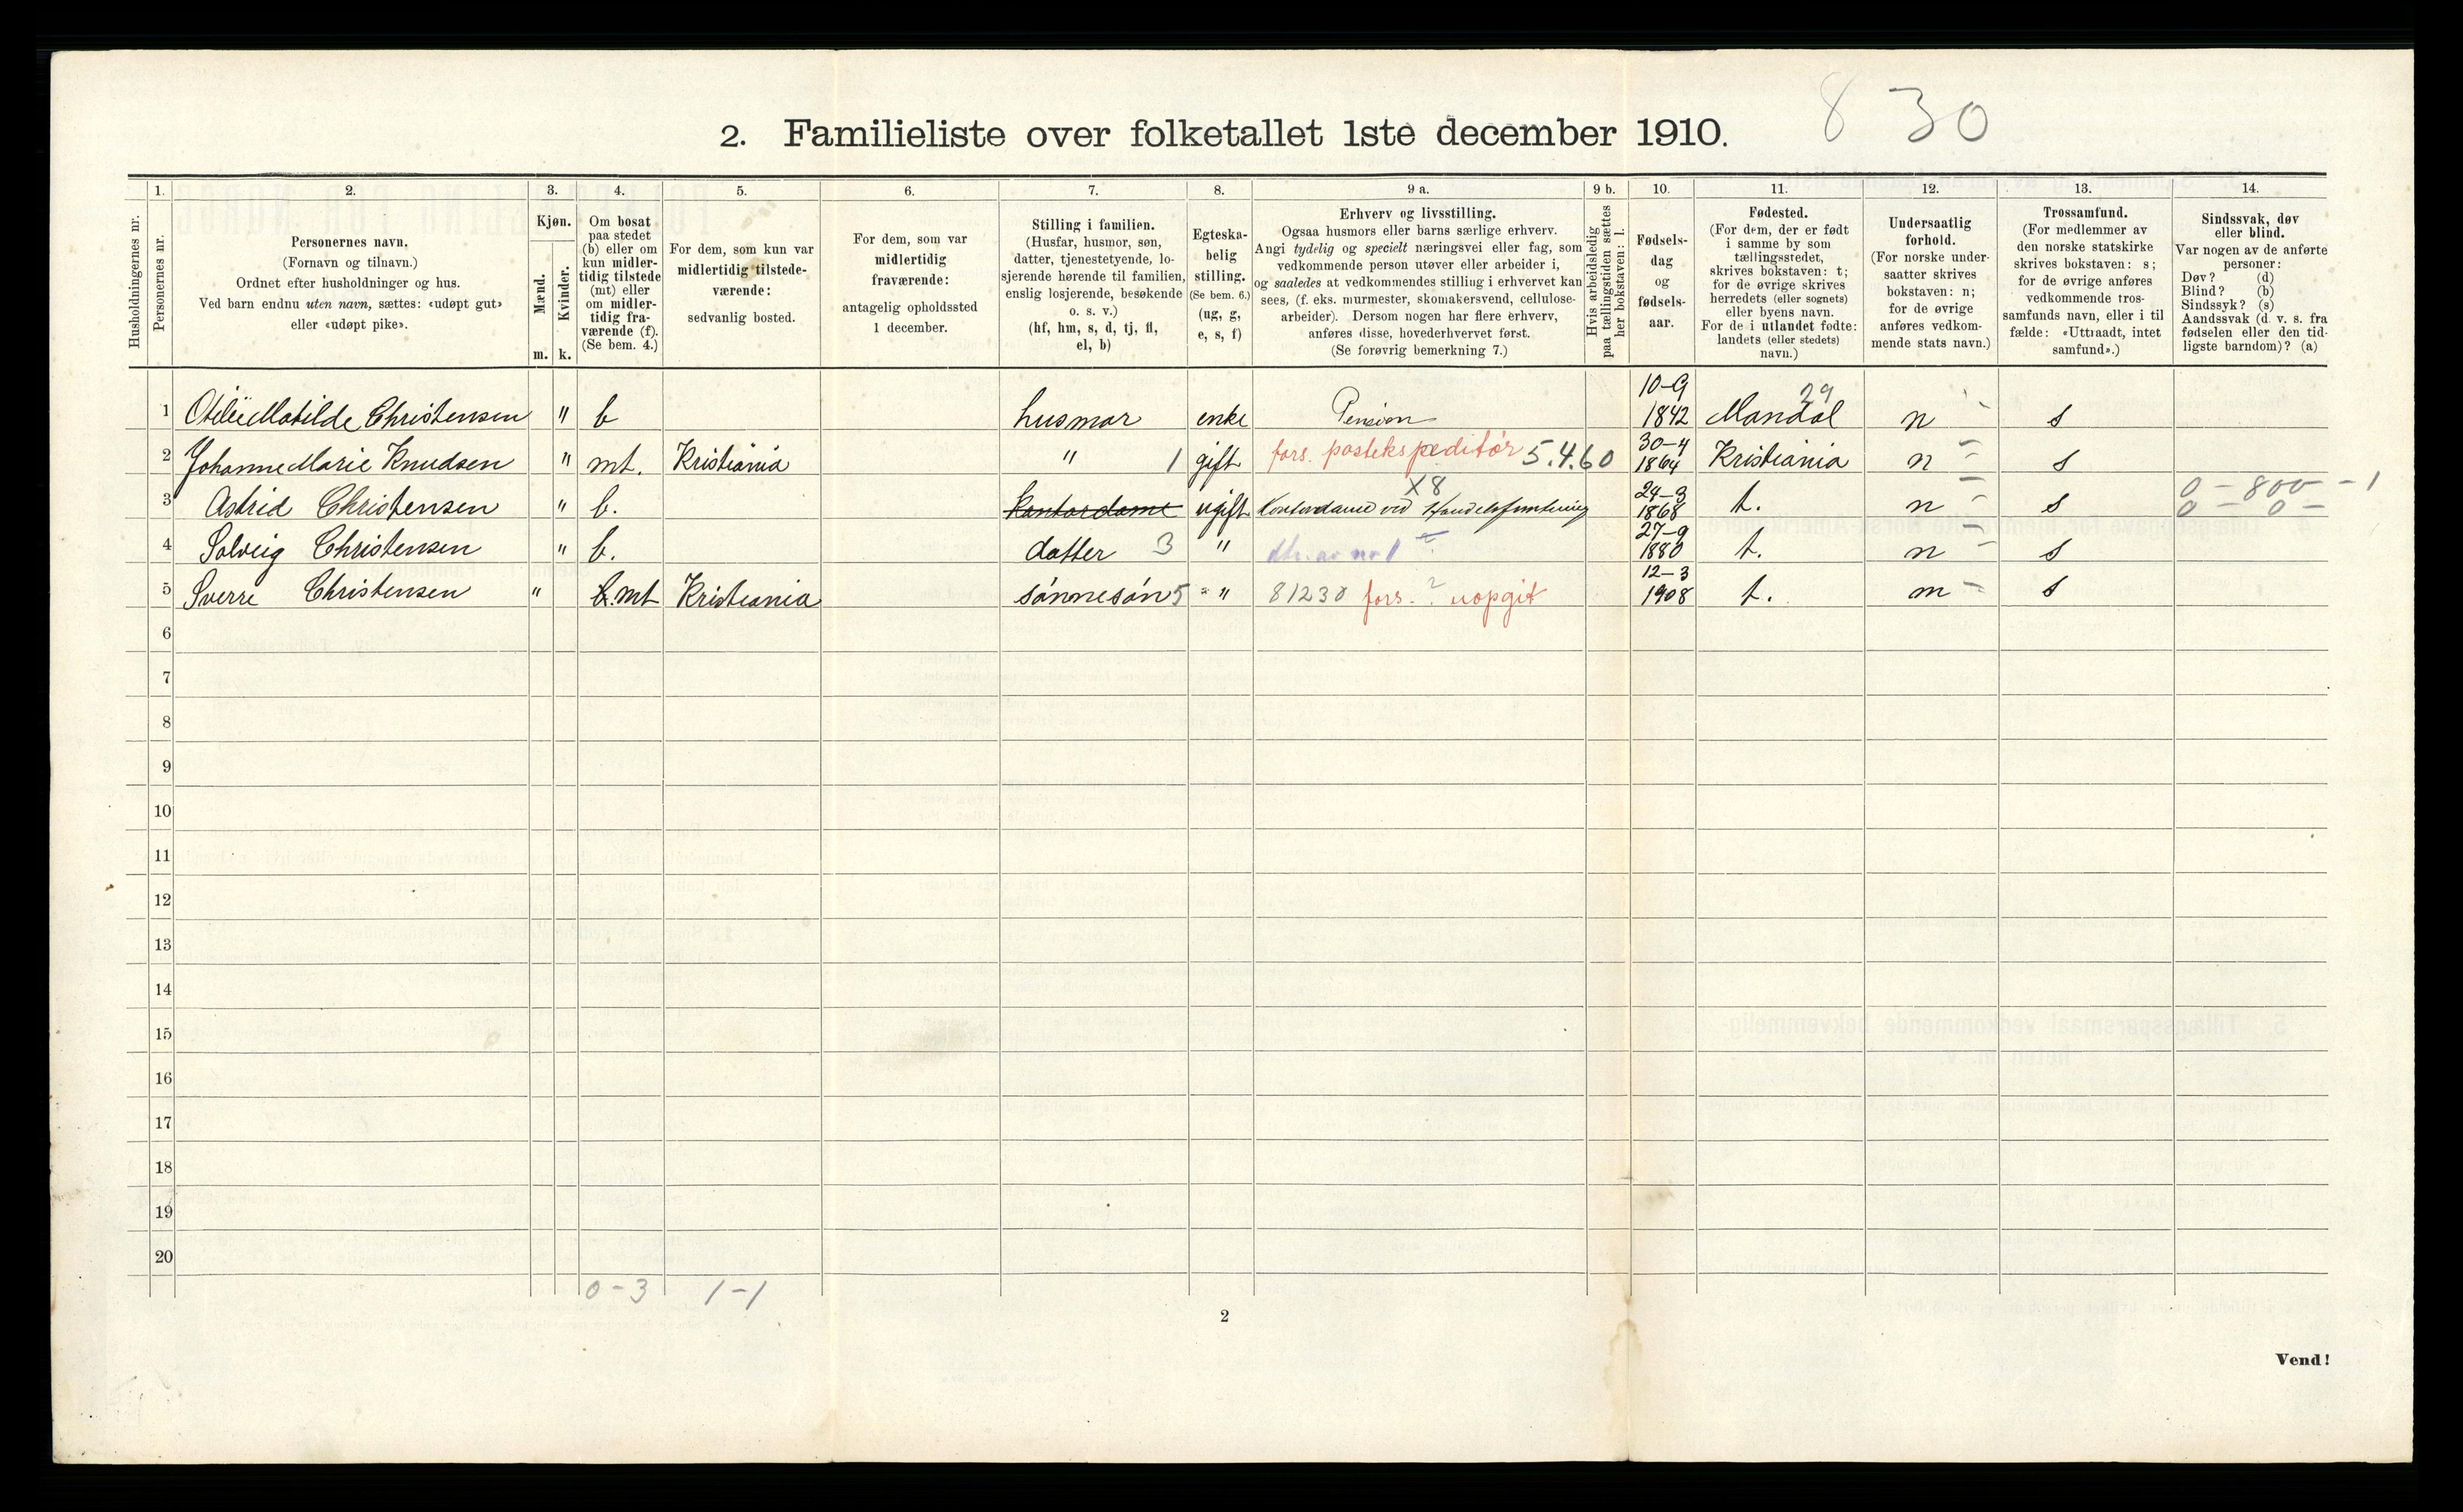 8 30
2. Familieliste over folketallet 1ste december 1910.
1. 2. 3. 4. 5. 6. 7. 8. 9 a. 9 b. 10. 11. 12. 13. 14.
Husholdningernes nr.
Personernes nr.
Personernes navn.
(Fornavn og tilnavn.)
Ordnet efter husholdninger og hus.
Ved barn endnu uten navn, sættes: «udøpt gut»
eller «udøpt pike».
Kjøn.
Mænd.
Kvinder.
m. k.
Om bosat
paa stedet
(b) eller om
kun midler-
tidig tilstede
(mt) eller
om midler-
tidig fra-
værende (f).
(Se bem. 4.)
For dem, som kun var
midlertidig tilstede-
værende:
sedvanlig bosted.
For dem, som var
midlertidig
fraværende:
antagelig opholdssted
1 december.
Stilling i familien.
(Husfar, husmor, søn,
datter, tjenestetyende, lo-
sjerende hørende til familien,
enslig losjerende, besøkende
o. s. v.)
(hf, hm, s, d, tj, fl,
el, b)
Egteska-
belig
stilling.
(Se bem. 6.)
(ug, g,
e, s, f)
Erhverv og livsstilling.
Ogsaa husmors eller barns særlige erhverv.
Angi tydelig og specielt næringsvei eller fag, som
vedkommende person utøver eller arbeider i,
og saaledes at vedkommendes stilling i erhvervet kan
sees, (f. eks. murmester, skomakersvend, cellulose-
arbeider). Dersom nogen har flere erhverv,
anføres disse, hovederhvervet først.
(Se forøvrig bemerkning 7.)
Hvis arbeidsledig
paa tællingstiden sættes
her bokstaven: l.
Fødsels-
dag
og
fødsels-
aar.
Fødested.
(For dem, der er født
i samme by som
tællingsstedet,
skrives bokstaven: t;
for de øvrige skrives
herredets (eller sognets)
eller byens navn.
For de i utlandet fødte:
landets (eller stedets)
navn.)
Undersaatlig
forhold.
(For norske under-
saatter skrives
bokstaven: n;
for de øvrige
anføres vedkom-
mende stats navn.)
Trossamfund.
(For medlemmer av
den norske statskirke
skrives bokstaven: s;
for de øvrige anføres
vedkommende tros-
samfunds navn, eller i til
fælde: «Uttraadt, intet
samfund».)
Sindssvak, døv
eller blind.
Var nogen av de anførte
personer:
Døv? (d)
Blind? (b)
Sindssyk? (s)
Aandssvak (d. v. s. fra
fødselen eller den tid-
ligste barndom)? (a)
1 Otilie Matilde Christensen " b husmor enke Pension 10-9 1842 Mandal 29 n s
2 Johanne Marie Knudsen " mt. Kristiania " 1 gift fors. postekspeditór 5.4.60 30-4 1864 Kristiania n s
3 Astrid Christensen " b. kontordame ugift Kontordame ved X8 24-3 1868 t. n s 0 - 800 - 1
0 - 0 -
4 Solveig Christensen " b. datter 3 " dtr. av nr 1 27-9 1880 t. n s
5 Sverre Christensen " b. mt Kristiania sónnesón 5 " 81230 fors. ? uopgit 12-3 1908 t. n s
6
7
8
9
10
11
12
13
14
15
16
17
18
19
20
0-3 1-1
2
Vend!